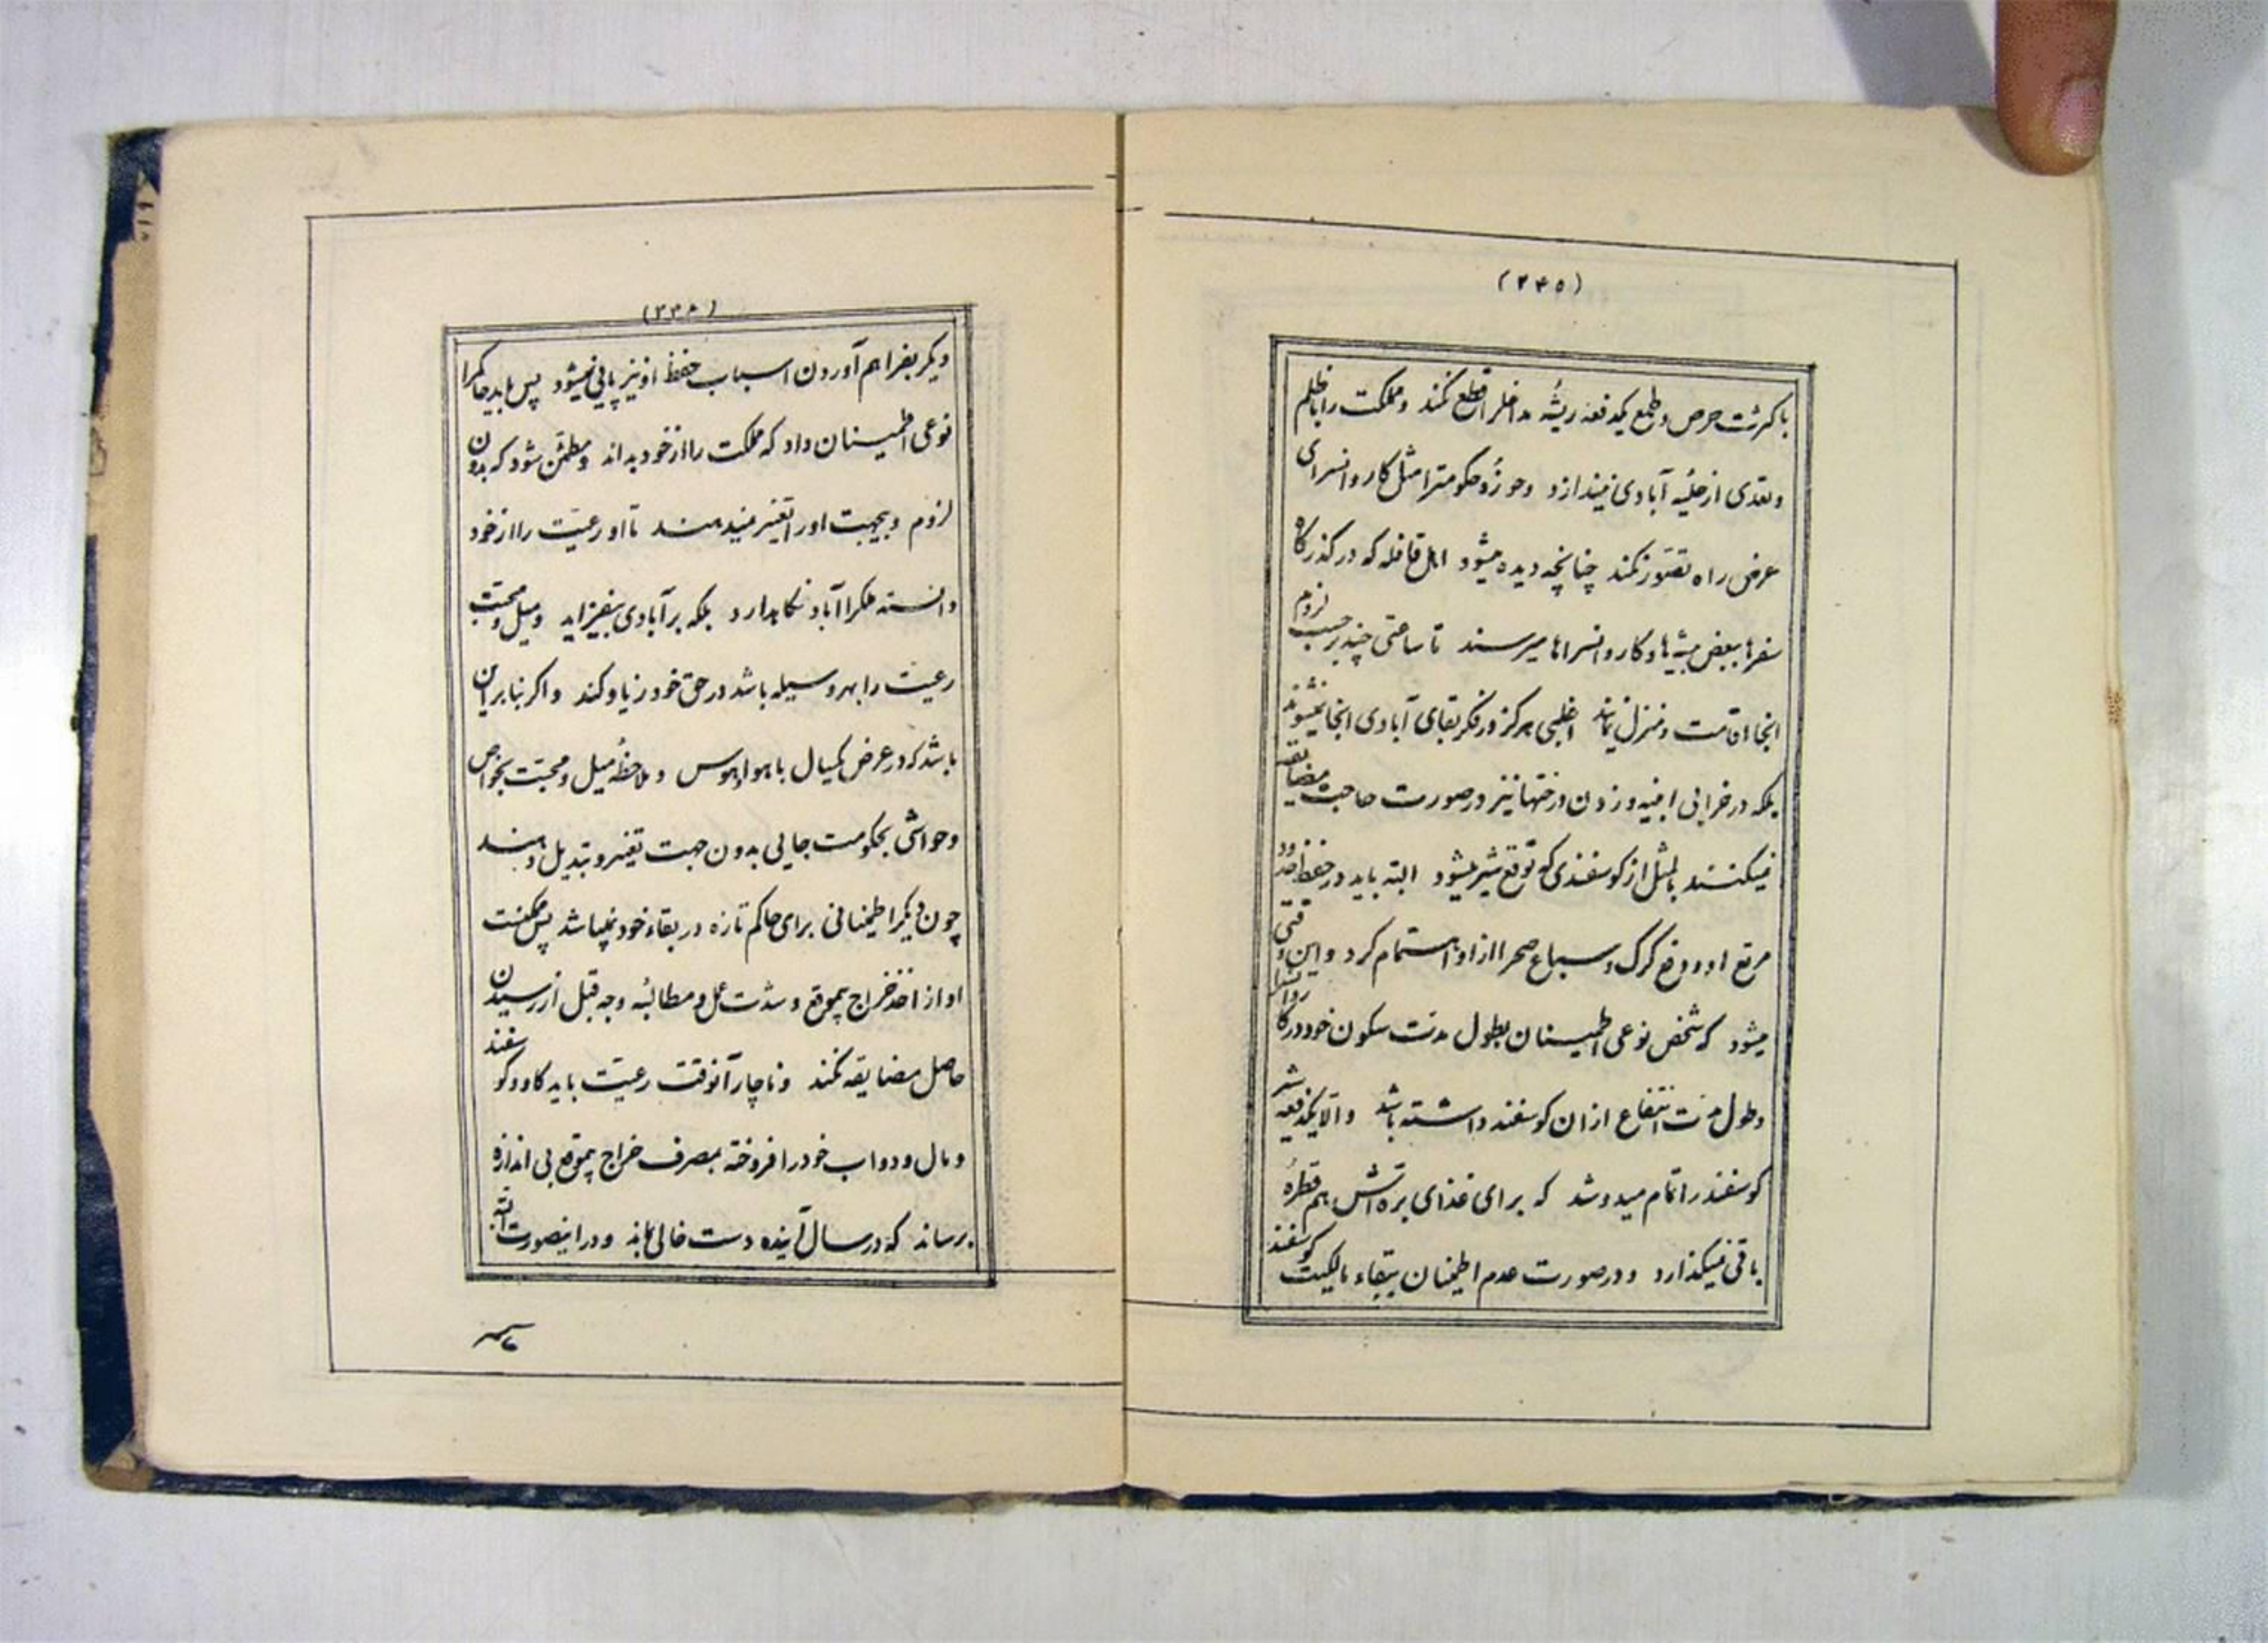 (۲۴۵)
با کثرت حرص و طمع یکدفعه ریشه مداخل را قطع نکند و مملکت را با ظلم
و تعدی از حلیه آبادی نیندازد و حوزهٔ حکومترا مثل کاروانسرای
عرض راه تصور نکند چنانچه دیده میشود اهل قافله که در گذرگاه
سفرها ببعض بیشه‌ها و کاروانسراها میرسند تا ساعتی چند بر حسب لزوم
انجا اقامت و منزل نمایند اغلبی هرگز در فکر بقای آبادی انجا نمیشوند
بلکه در خرابی ابنیه و زدن درختها نیز در صورت حاجت مضایقه
نمیکنند بالمثل از گوسفندی که توقع شیر میشود البته باید در حفظ حدود
مرتع او و دفع گرگ و سباع صحرا از او اهتمام کرد و این وقتی
میشود که شخص نوعی اطمینان بطول مدت سکون خود در کاروانسرا
و طول مدت انتفاع از ان گوسفند داشته باشد و الا یکدفعه شیر
گوسفند را تمام میدوشد که برای غذای بره اش هم قطرهٔ
باقی نمیگذارد و در صورت عدم اطمینان ببقاء مالکیت گوسفند
دیگر بفراهم آوردن اسباب حفظ او نیز پاپی نمیشود پس باید حاکمرا
نوعی اطمینان داد که مملکت را از خود بداند و مطمئن شود که بدون
لزوم و بیجهت او را تغییر نمیدهند تا او رعیت را از خود
دانسته ملکرا آباد نگاهدارد بلکه بر آبادی بیفزاید و میل و محبت
رعیت را بهر وسیله باشد در حق خود زیاد کند و اگر بنا بر این
باشد که در عرض یکسال با هوا و هوس و ملاحظهٔ میل و محبت بخواص
و حواشی بحکومت جایی بدون جهت تغییر و تبدیل دهند
چون دیگر اطمینانی برای حاکم تازه در بقاء خود نمیباشد پس ممکنست
او از اخذ خراج بیموقع و شدت عمل و مطالبهٔ وجه قبل از رسیدن
حاصل مضایقه نکند و ناچار آنوقت رعیت باید گاو و گوسفند
و مال و دواب خود را فروخته بمصرف خراج بیموقع بی اندازه
برساند که در سال آینده دست خالی بماند و در اینصورت البته